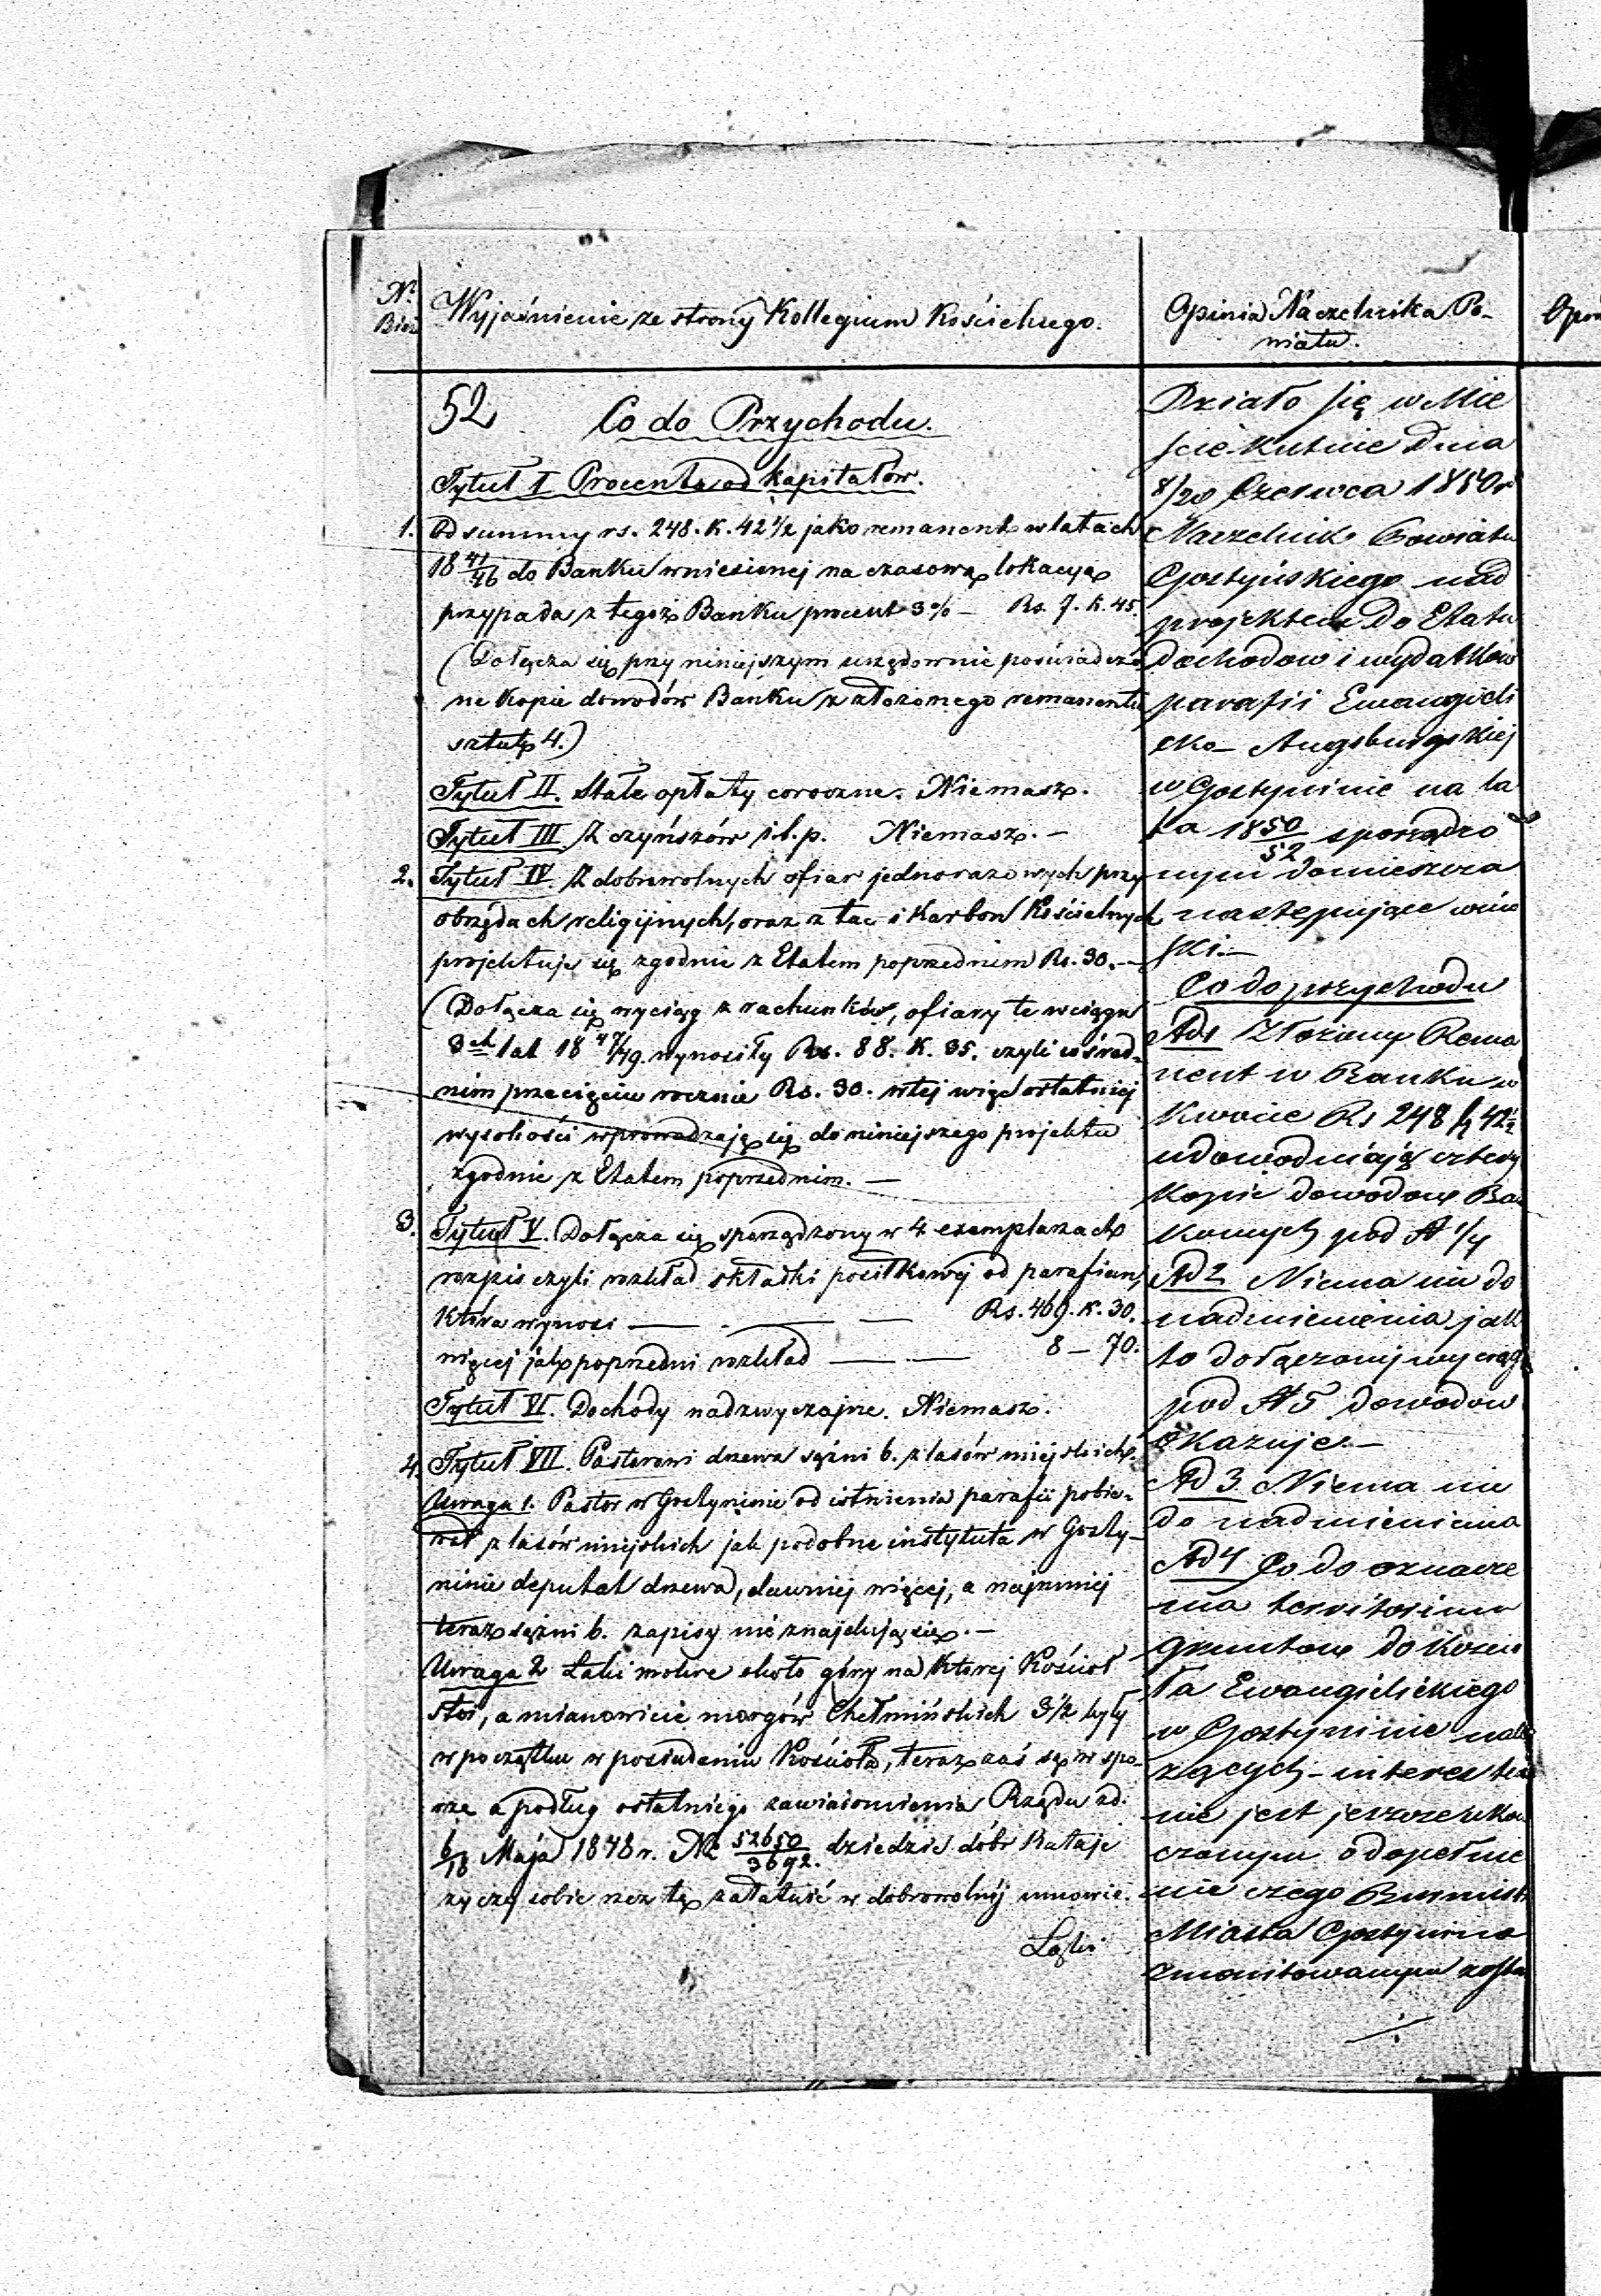 Nr. Bież
Wyjaśnienie ze strony Kollegium Kościelnego.
52
Co do Przychodu.
Tytuł I Procenta od kapitałów.
1. Od summy rs. 248. K. 42 1/2 jako remanent w latach
18 41/46 do Banku wniesionej na czasową lokacyą
przypada z tegoż Banku procent 3% – Rs. 7. K. 45.
(Dołącza się przy niniejszym urzędownie poświadczo
ne kopie dowodów Banku z złożonego remanentu
sztuk 4.)
Tytuł II. Stałe opłaty coroczne. Niemasz.
Tytuł III Z czyńszów i t. p. Niemasz. –
2. Tytuł IV. Z dobrowolnych ofiar jednorazowych przy
obrzędach religijnych, oraz z tac i Karbon Kościelnych
projektuje się zgodnie z Etatem poprzednim Rs. 30. –
(Dołącza się wyciąg z rachunków, ofiary te w ciągu
3ch lat 18 47/49 wynosiły Rs. 88. K. 35. czyli w śred-
nim przecięciu rocznie Rs. 30. w tej więc ostatniej
wysokości wprowadzają się do niniejszego projektu
zgodnie z Etatem poprzednim. –
3. Tytuł V. Dołącza się sporządzony w 4 exemplarzach
rozpis czyli rozkład składki posiłkowej od parafian,
która wynosi — . — — Rs. 469. K. 30.
więcej jak poprzedni rozkład — . — 8 – 70.
Tytuł VI. Dochody nadzwyczajne. Niemasz.
4. Tytuł VII. Pastorowi drzewa sążni 6. z lasów miejskich.
Uwaga 1. Pastor w Gostyninie od istnienia parafii pobie-
rał z lasów miejskich jak podobne instytuta w Gosty-
ninie deputat drzewa, dawniej więcej, a najmniej
teraz sążni 6. zapisy nie znajdują się. –
Uwaga 2 Łąki około góry na której Kościoł
stoi, a mianowicie morgów Chełmińskich 3 1/2 były
w początku w posiadaniu Kościoła, teraz zaś są w spo-
rze a podług ostatniego zawiadomienia Rządu zd.
6/18 Maja 1848 r. No 52650/3692. dziedzic dóbr Rataje
życzy sobie rzecz tę załatwić w dobrowolnej umowie.
Łąki
Opinia Naczelnika Po-
wiatu.
Działo się w Mie
scie Kutnie Dnia
8/20 Czerwca 1850 r
Naczelnik Powiatu
Gostyńskiego nad
projektem do Etatu
Dochodow i wydatkow
parafii Ewangieli
cko – Augsburgskiej
w Gostyninie na la
ta 1850/52 sporządzo
nym domieszcza
następujące wnio
ski. –
Co do przychodu
Ad 1 Złożony Rema
nent w Banku w
Kwocie Rs 248 k 42 1/2
udowodniają cztery
Kopie dowodow Ban
kowych pod N 1/4
Ad 2 Niema nic do
nadmienienia jak
to dołączony wyciąg
pod N 5 dowodow
okazuje. –
Ad 3 Niema nic
do nadmienienia
Ad 4 Co do oznacze
nia territorium
gruntow do Koscio
ła Ewangielickiego
w Gostyninie nale
żących – interes ten
nie jest jeszcze ukon
czonym o dopełnie
nie czego Burmistrz
Miasta Gostynina
zmonitowanym zosta
Opin